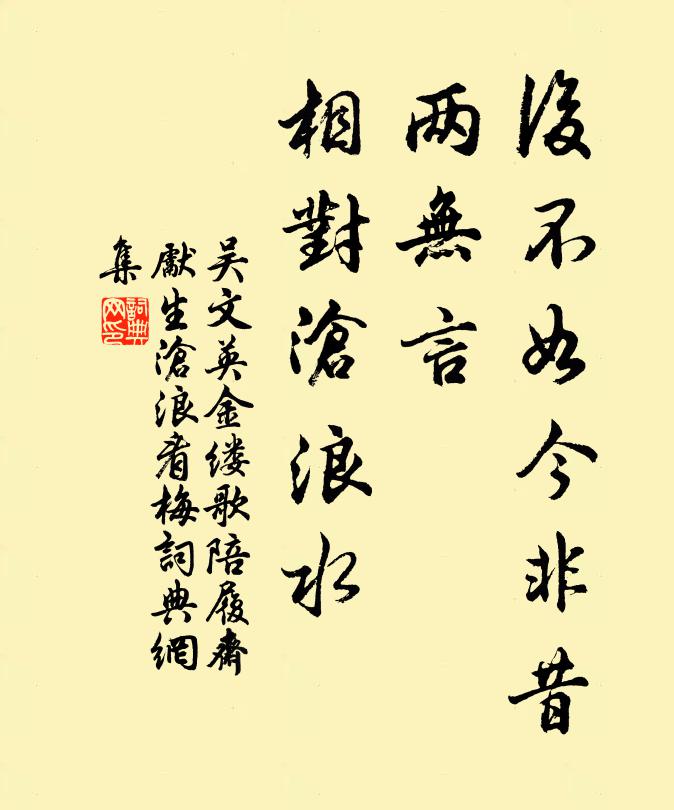 後不如今非昔
两無言
相對滄浪水
吴文英金缕歌陪履齋
獻生滄浪看梅詞典網
集
詞典网印